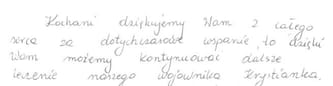 Kochani dziękujemy Wam z całego
serca za dotychczasowe wsparcie, to dzięki
Wam możemy kontynuować dalsze
leczenie naszego wojownika Krystianka.